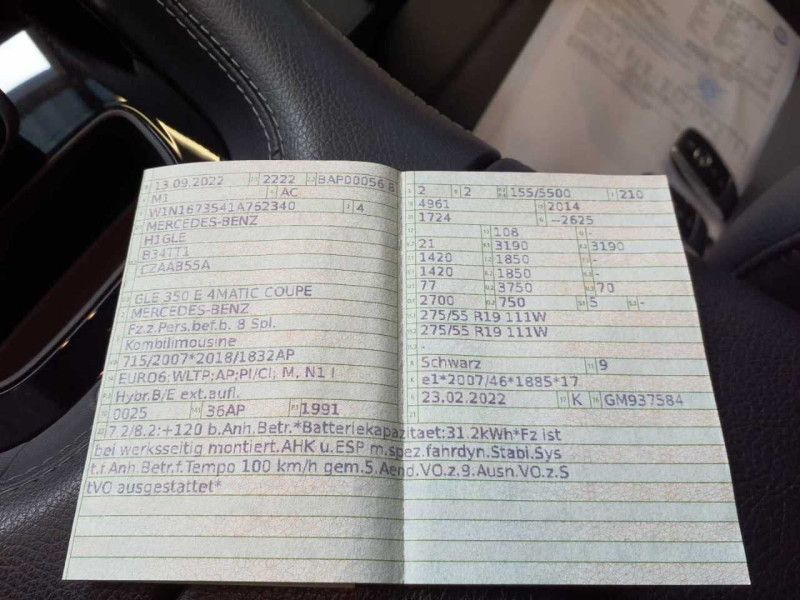 13.09.2022 2222 BAP00056 8
M1 AC
W1N1673541A762340 4
MERCEDES-BENZ
H1GLE
B34TT1
CZAAB55A
GLE 350 E 4MATIC COUPE
MERCEDES-BENZ
Fz.z.Pers.bef.b. 8 Spl.
Kombilimousine
715/2007*2018/1832AP
EURO6;WLTP;AP;PI/CI; M, N1 I
Hybr.B/E ext.aufl.
0025 36AP 1991
7.2/8.2:+120 b.Anh.Betr.*Batteriekapazitaet:31.2kWh*Fz ist
bei werksseitig montiert.AHK u.ESP m.spez.fahrdyn.Stabi.Sys
t.f.Anh.Betr.f.Tempo 100 km/h gem.5.Aend.VO.z.9.Ausn.VO.z.S
tVO ausgestattet*
2 2 155/5500 210
4961 2014
1724 --2625
108 -
21 3190 3190
1420 1850 -
1420 1850 -
77 3750 70
2700 750 5 -
275/55 R19 111W
275/55 R19 111W
-
Schwarz 9
e1*2007/46*1885*17
23.02.2022 K GM937584